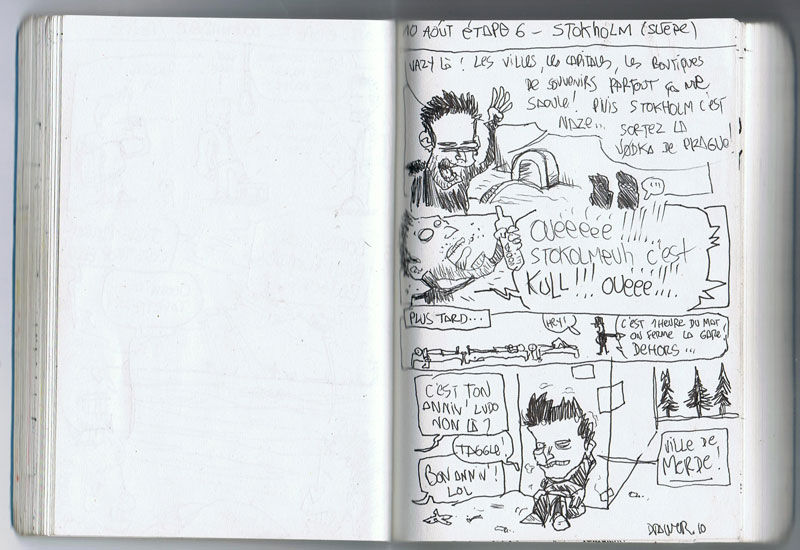 10 AOÛT ÉTAPE 6 – STOKHOLM (SUÈDE)
VAZY LÀ ! LES VILLES, LES CAPITALES, LES BOUTIQUES
DE SOUVENIRS PARTOUT ÇA ME
SAOULE! PUIS STOKHOLM C'EST
NAZE... SORTEZ LA
VODKA DE PRAGUE!
(!!)
OUÉÉÉÉÉ
STOKOLMEUH C'EST
KULL!!! OUEEE....
PLUS TARD...
HEY!
C'EST 1 HEURE DU MAT
ON FERME LA GARE,
DEHORS...
C'EST TON
ANNIV' LUDO
NON LÀ ?
TAGGLE!
BON ANNIV'!
LOL
VILLE DE
MERDE!